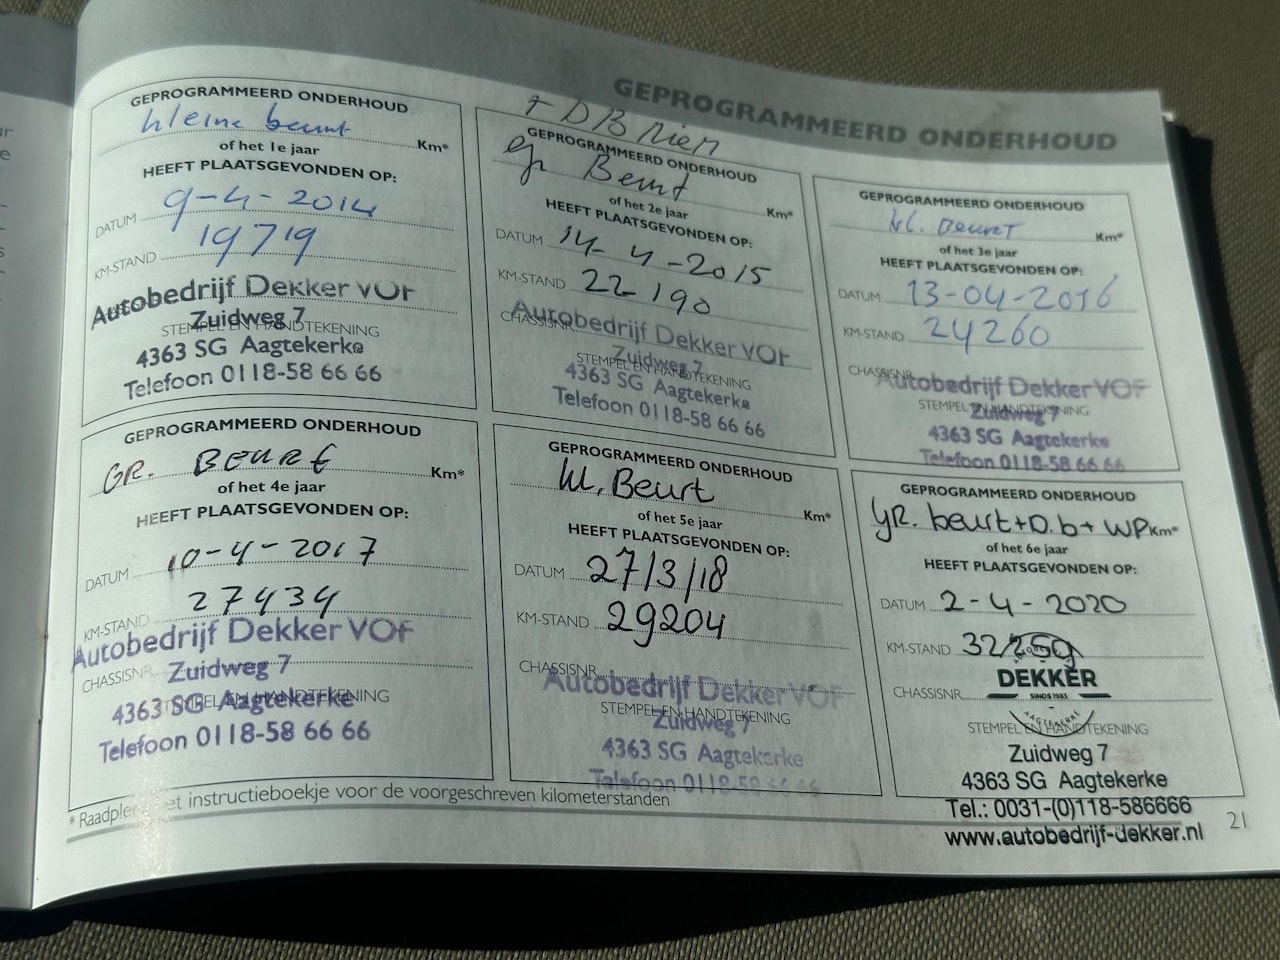 GEPROGRAMMEERD ONDERHOUD
GEPROGRAMMEERD ONDERHOUD
kleine beurt
Km*
of het 1e jaar
HEEFT PLAATSGEVONDEN OP:
DATUM 9-4-2014
KM-STAND 19719
Autobedrijf Dekker VOF
Zuidweg 7
STEMPEL EN HANDTEKENING
4363 SG Aagtekerke
Telefoon 0118-58 66 66
+ DB Riem
GEPROGRAMMEERD ONDERHOUD
gr Beurt
Km*
of het 2e jaar
HEEFT PLAATSGEVONDEN OP:
DATUM 14-4-2015
KM-STAND 22190
CHASSISNR.
Autobedrijf Dekker VOF
Zuidweg 7
STEMPEL EN HANDTEKENING
4363 SG Aagtekerke
Telefoon 0118-58 66 66
GEPROGRAMMEERD ONDERHOUD
kl. Beurt
Km*
of het 3e jaar
HEEFT PLAATSGEVONDEN OP:
DATUM 13-04-2016
KM-STAND 24260
CHASSISNR.
Autobedrijf Dekker VOF
STEMPEL EN HANDTEKENING
Zuidweg 7
4363 SG Aagtekerke
Telefoon 0118-58 66 66
GEPROGRAMMEERD ONDERHOUD
GR. BEURT
Km*
of het 4e jaar
HEEFT PLAATSGEVONDEN OP:
DATUM 10-4-2017
KM-STAND 27434
Autobedrijf Dekker VOF
CHASSISNR.
Zuidweg 7
STEMPEL EN HANDTEKENING
4363 SG Aagtekerke
Telefoon 0118-58 66 66
GEPROGRAMMEERD ONDERHOUD
kl. Beurt
Km*
of het 5e jaar
HEEFT PLAATSGEVONDEN OP:
DATUM 27/3/18
KM-STAND 29204
CHASSISNR.
Autobedrijf Dekker VOF
STEMPEL EN HANDTEKENING
Zuidweg 7
4363 SG Aagtekerke
Telefoon 0118-58 66 66
GEPROGRAMMEERD ONDERHOUD
gR. beurt+D.b+ WP Km*
of het 6e jaar
HEEFT PLAATSGEVONDEN OP:
DATUM 2-4-2020
KM-STAND 32259
DEKKER
SINDS 1983
CHASSISNR.
AAGTEKERKE
STEMPEL EN HANDTEKENING
Zuidweg 7
4363 SG Aagtekerke
Tel.: 0031-(0)118-586666
www.autobedrijf-dekker.nl
* Raadpleeg het instructieboekje voor de voorgeschreven kilometerstanden
21